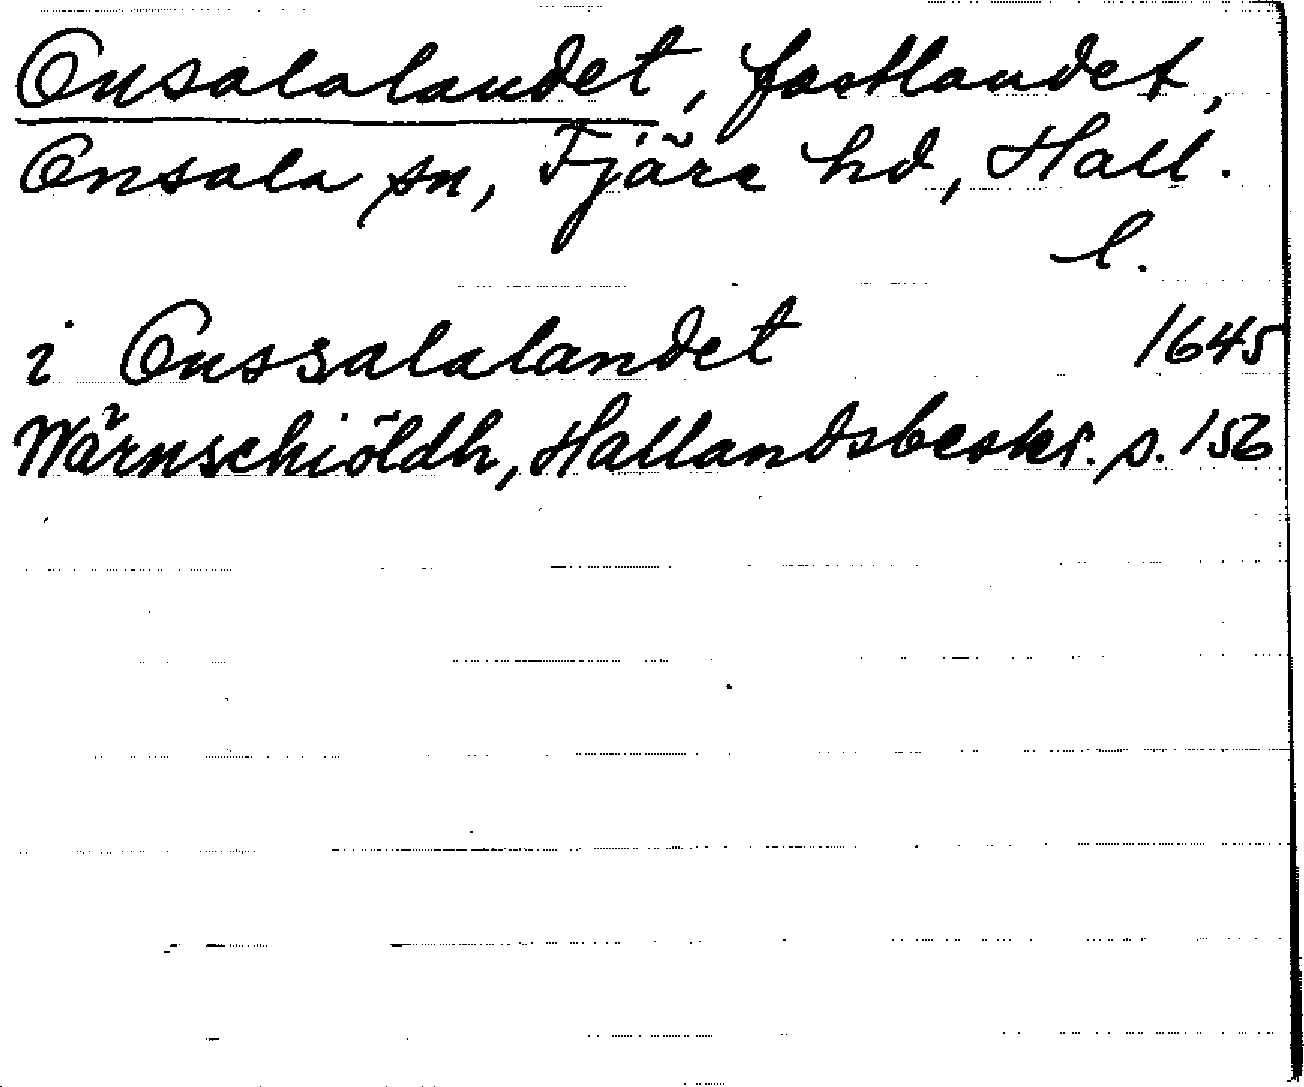 Onsalalandet, fastlandet,
Onsala sn, Fjäre hd, Hall.
l.
i Onssalalandet 1645
Wärnschiöldh, Hallandsbeskr. s. 156